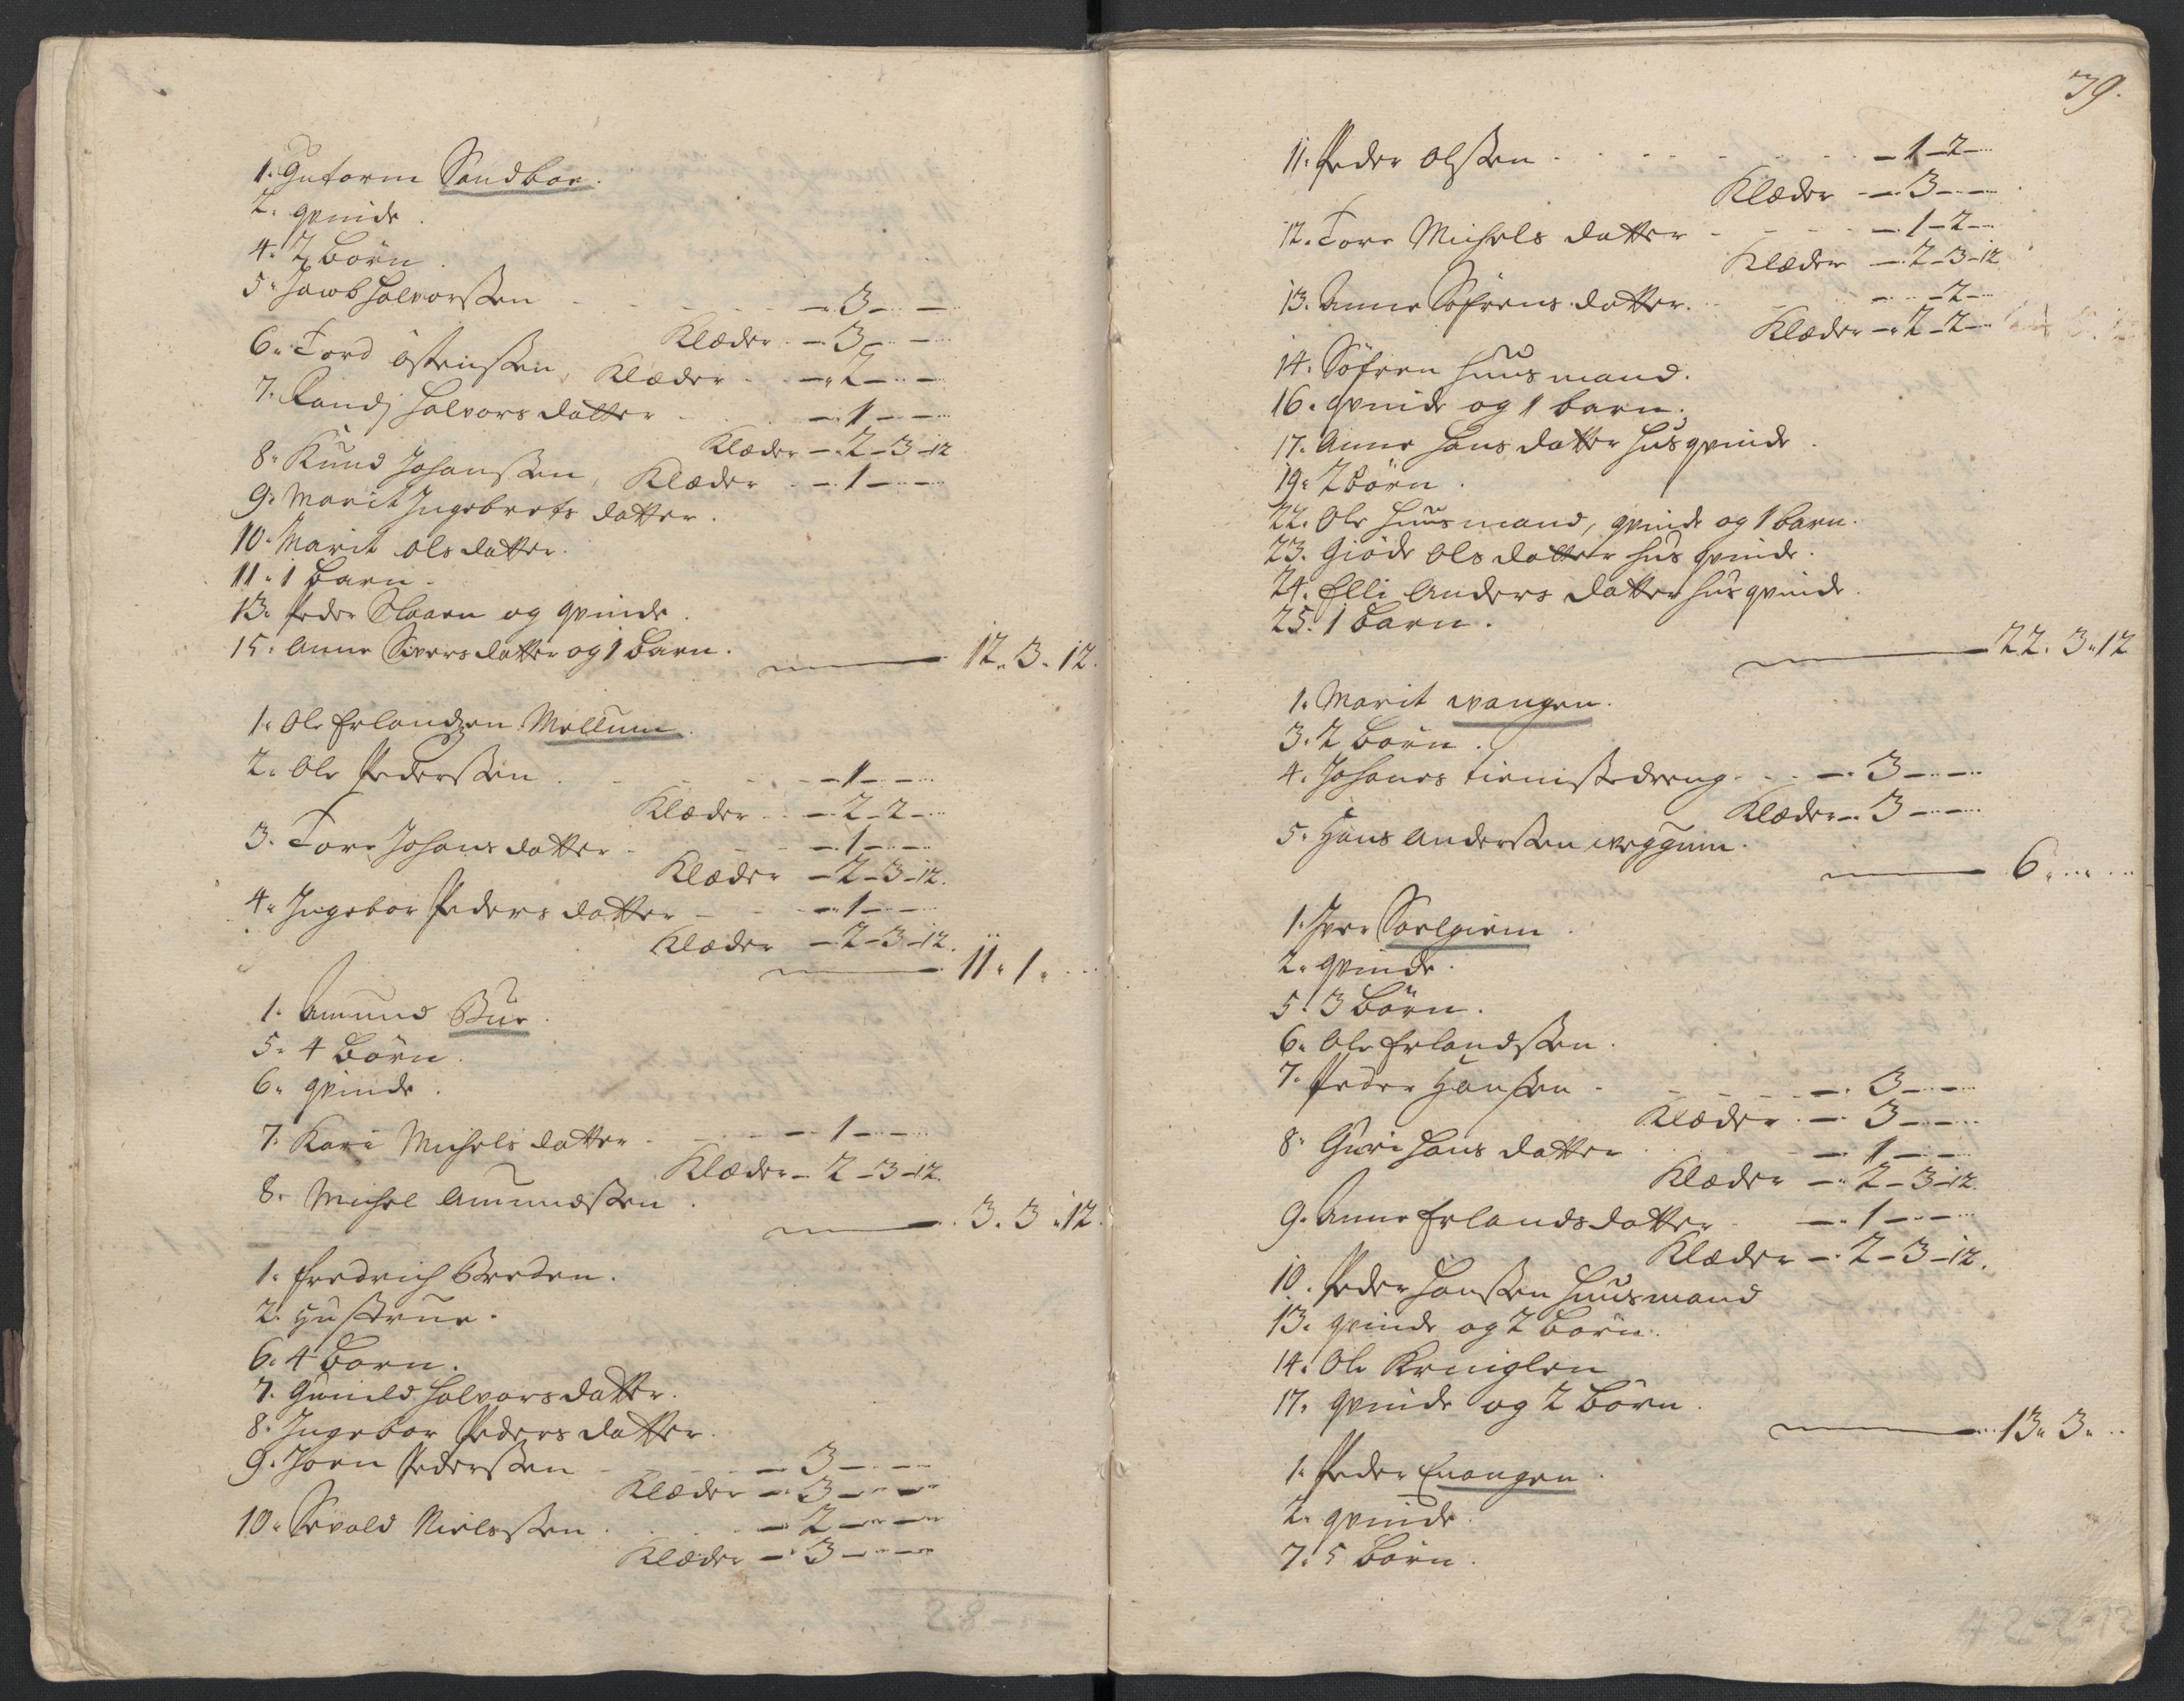 1. Gutorm Sandboe.
2. qvinde.
4. 2 börn.
5. Jacob Halvorssen - 3 - -
Klæder - 3 - -
6. Tord Östenssen, Klæder - 2 - -
7. Randj Halvors datter - 1 - -
Klæder - 2 - 3 - 12
8. Knud Johanssen, Klæder - 1 - -
9. Marit Ingebrets datter.
10. Marit Ols datter.
11. 1 barn.
13. Peder og qvinde.
15. Anne Sivers datter og 1 barn. 12. 3. 12.
1. Ole Erlandzen Mellum.
2. Ole Pederssen - 1 - -
Klæder - 2 - 2 -
3. Tore Johans datter - 1 - -
Klæder - 2 - 3 - 12.
4. Ingebor Peders datter - 1 - -
Klæder - 2 - 3 - 12.
11. 1. ..
1. Amund Bue.
5. 4 börn.
6. qvinde.
7. Kari Michels datter - 1 - -
Klæder - 2 - 3 - 12.
8. Michel Amundssen. 3. 3. 12.
1. Fredrich Breden.
2. Hustrue.
6. 4 born.
7. Gunild Halvors datter.
8. Ingebor Peders datter.
9. Joen Pederssen - 3 - -
Klæder - 3 - -
10. Sevald Nielssen - 2 - -
Klæder - 3 - -
39.
11. Peder Olssen - 1 - 2 -
Klæder - 3 - -
12. Tore Michels datter - 1 - 2 -
Klæder - 2 - 3 - 12
13. Anne Söfrens datter. - - 2 -
Klæder - 2 - 2 -
14. Söfren huusmand.
16. qvinde og 1 barn.
17. Anne Hans datter husqvinde.
19. 2 börn.
22. Ole huusmand, qvinde og 1 barn.
23. Giöde Ols datter hus qvinde.
24. Elli Anders datter hus qvinde.
25. 1 barn.
22. 3. 12
1. Marit wangen.
3. 2 börn.
4. Johanes tienistedreng - 3 - -
Klæder - 3 - -
5. Hans Anderssen weggum.
6. .. ..
1. Iver Sielgiem.
2. qvinde.
5. 3 börn.
6. Ole Erlandssen.
7. Peder Hanssen - 3 - -
Klæder - 3 - -
8. Guri Hans datter - 1 - -
Klæder - 2 - 3 - 12.
9. Anne Erlands datter - 1 - -
Klæder - 2 - 3 - 12.
10. Peder Hanssen huusmand
13. qvinde og 2 börn.
14. Ole
17. qvinde og 2 börn.
13. 3. ..
1. Peder Enangen.
2. qvinde.
7. 5 börn.
42-2-12